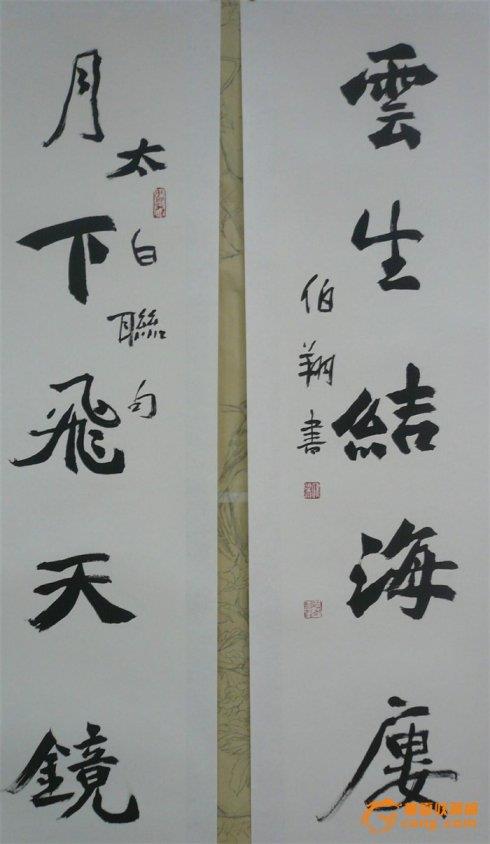 月下飛天鏡
太白聯句
雲生結海廔
伯翔書
cang.com